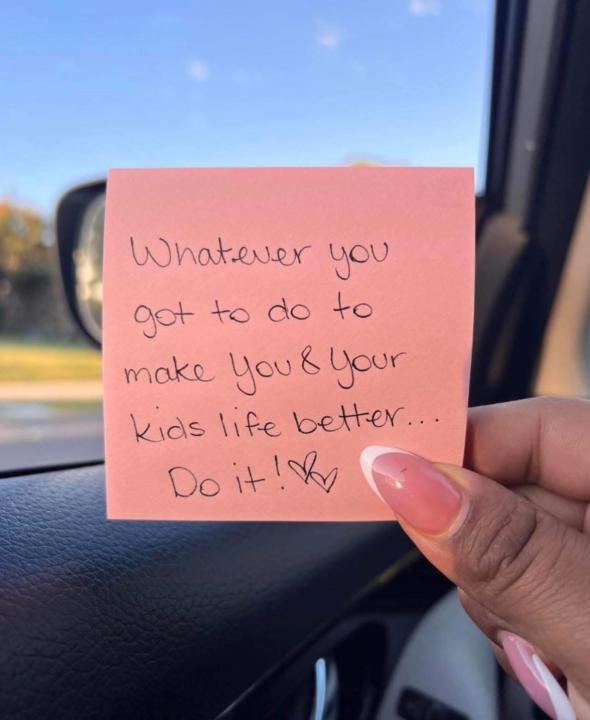 Whatever you
got to do to
make you & your
kids life better...
Do it!